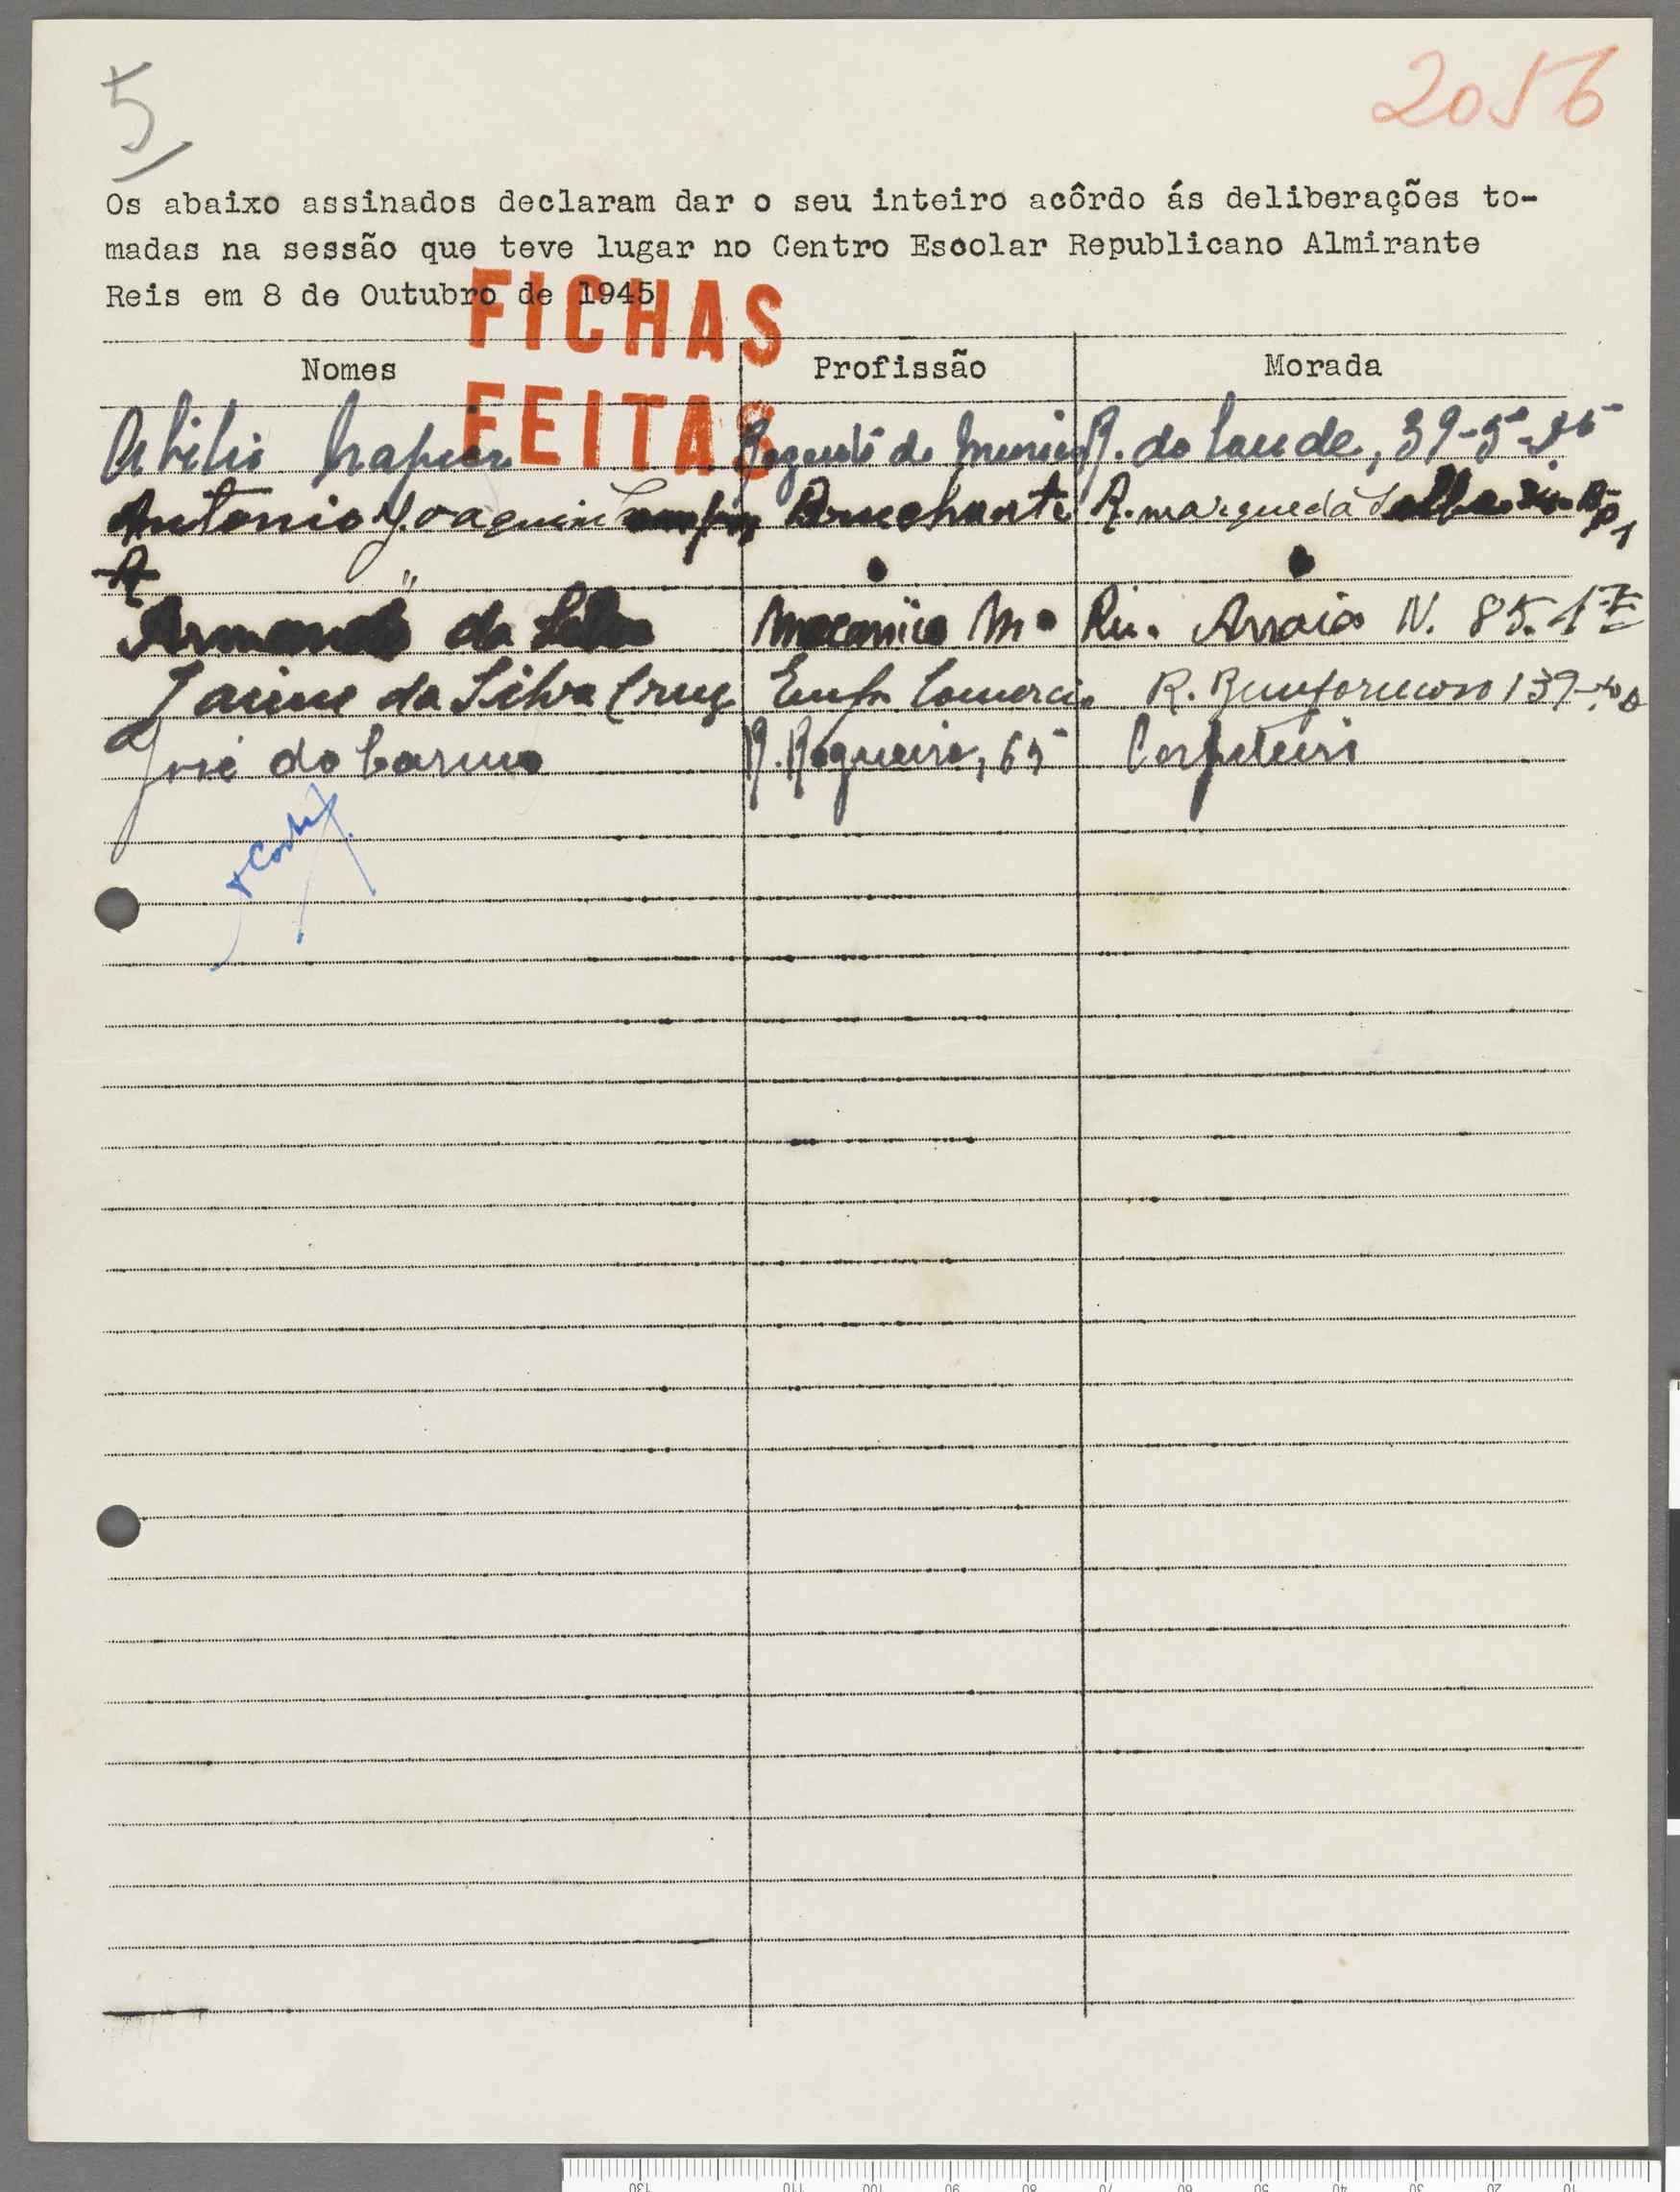 5
2056
Os abaixo assinados declaram dar o seu inteiro acôrdo ás deliberações to-
madas na sessão que teve lugar no Centro Escolar Republicano Almirante
Reis em 8 de Outubro de 1945
FICHAS
FEITAS
Nomes Profissão Morada
Abilio R. do Saude, 39-5º
Antonio Joaquim R. marquez da
Armando da Silva Mecanico Mº Rua Arroios N. 85. 1º
Jaime da Silva Cruz Emp. Comercio R. Benformoso 139
José do Carmo R. Regueira, 65 Carpeteiro